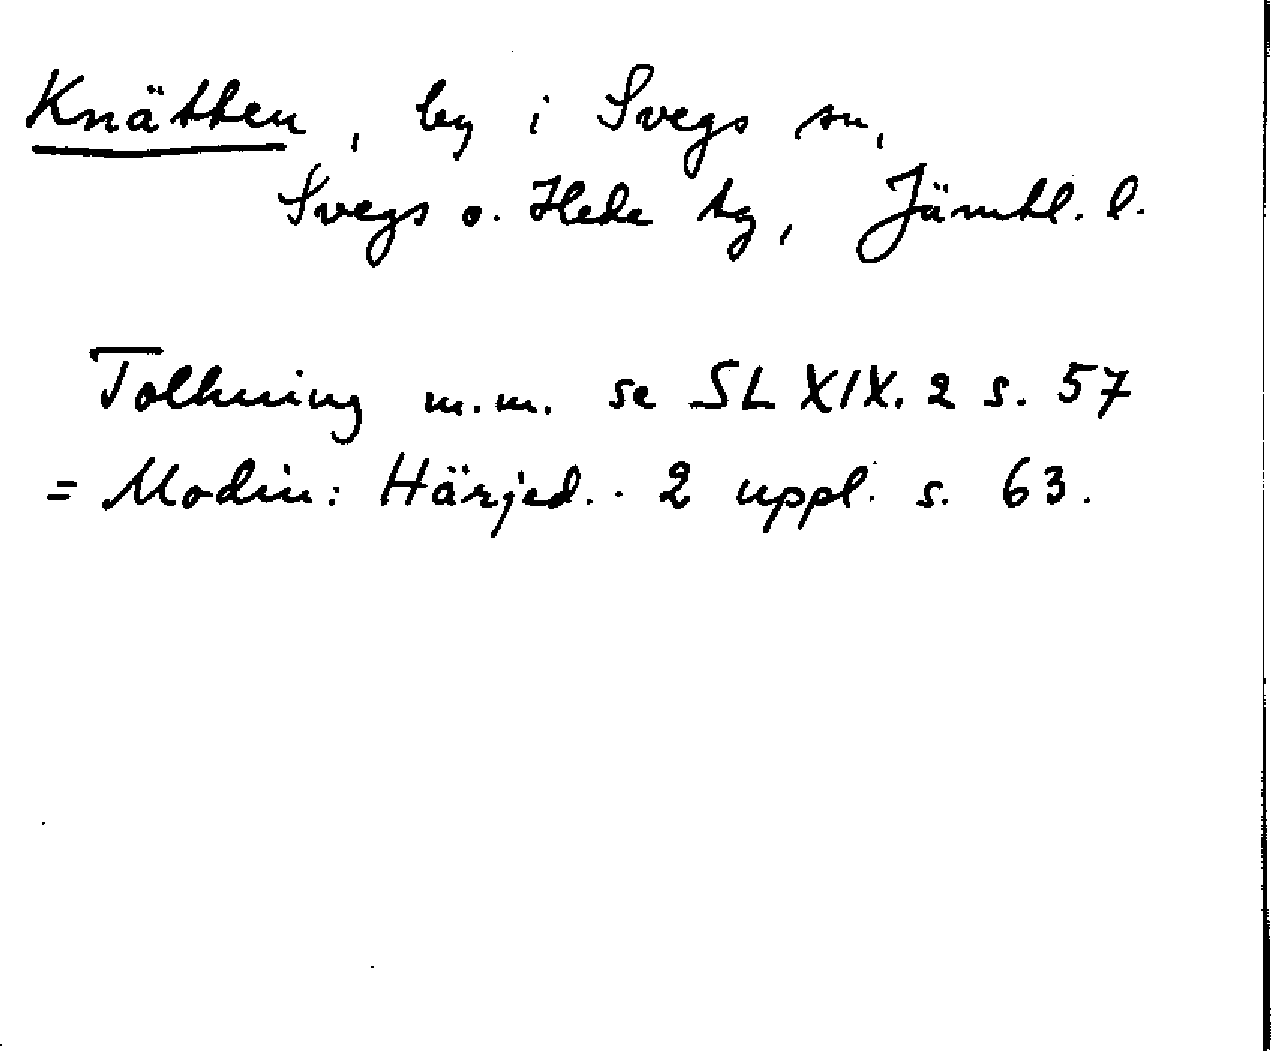 Knätten, by i Svegs sn,
Svegs o. Hede tg, Jämtl. l.
Tolkning m.m. se SL XIX. 2 s. 57
= Modin: Härjed. . 2 uppl. s. 63.